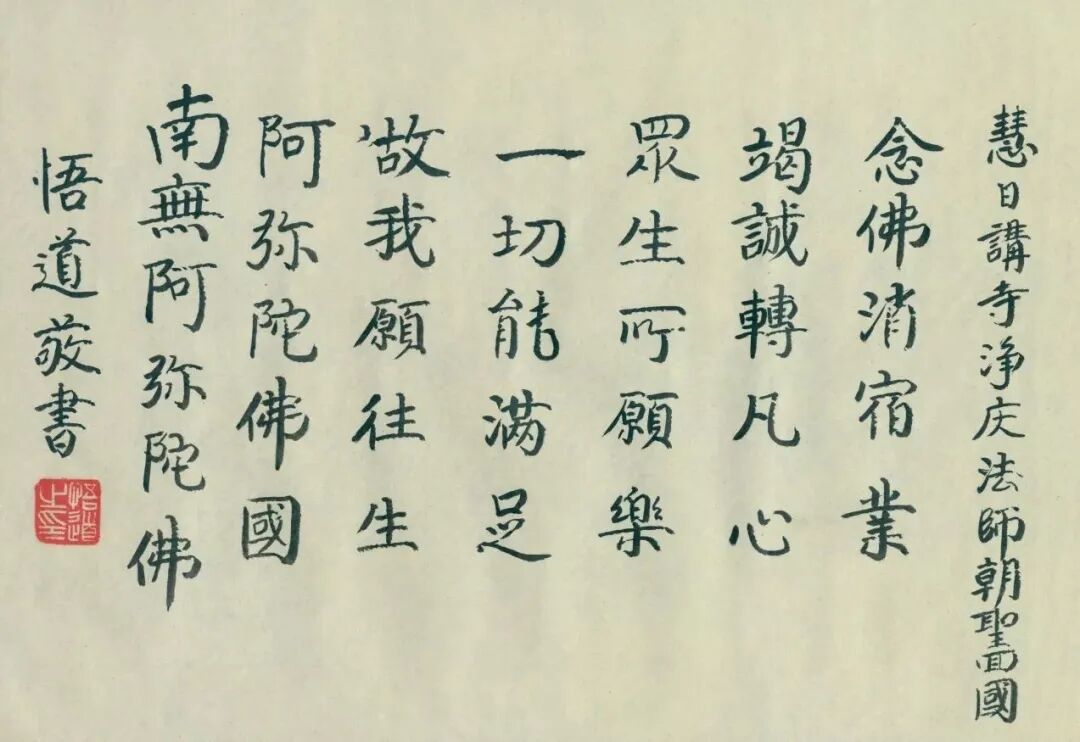 慧日講寺浄庆法師朝聖囬國
念佛消宿業
竭誠轉凡心
眾生所願樂
一切能满足
故我願往生
阿弥陀佛國
南無阿弥陀佛
悟道敬書
悟道之印